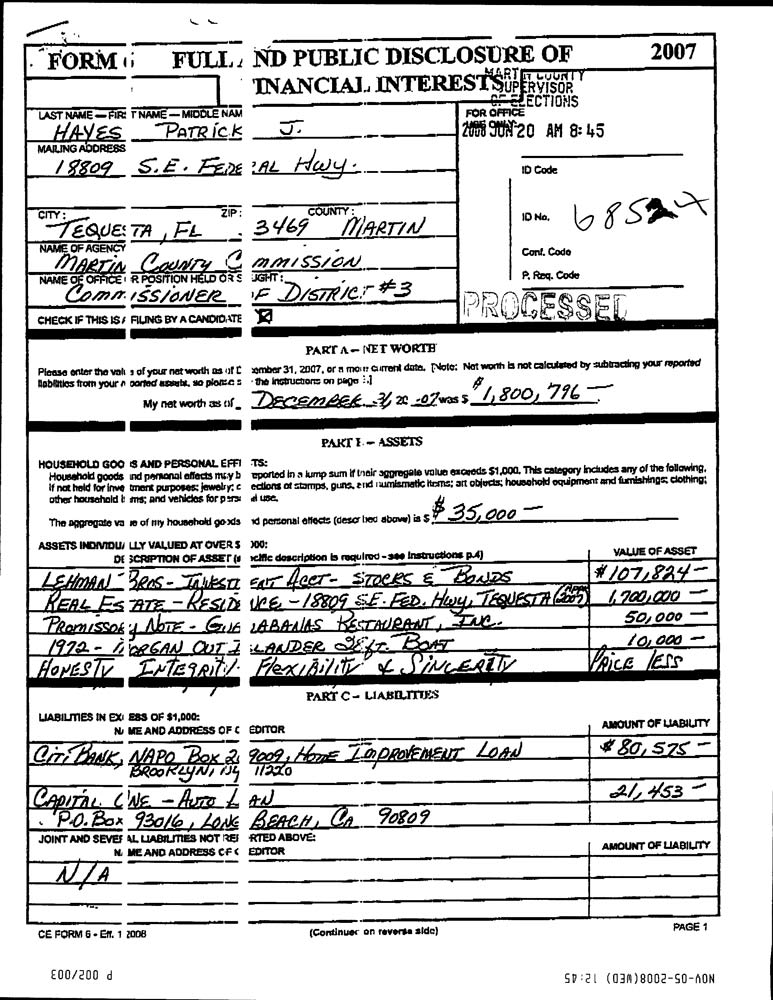 FORM 6 FULL AND PUBLIC DISCLOSURE OF 2007
FINANCIAL INTERESTS
MARTIN COUNTY
SUPERVISOR
OF ELECTIONS
LAST NAME — FIRST NAME — MIDDLE NAM
HAYES PATRICK J.
FOR OFFICE
2008 JUN 20 AM 8:45
MAILING ADDRESS
18809 S.E. FEDERAL HWY.
ID Code
CITY: ZIP: COUNTY:
TEQUESTA, FL 3469 MARTIN
ID No. 68524
NAME OF AGENCY
MARTIN COUNTY COMMISSION
Conf. Code
NAME OF OFFICE OR POSITION HELD OR SOUGHT:
COMMISSIONER OF DISTRICT #3
P. Req. Code
PROCESSED
CHECK IF THIS IS A FILING BY A CANDIDATE ☒
PART A – NET WORTH
Please enter the value of your net worth as of December 31, 2007, or a more current date. [Note: Net worth is not calculated by subtracting your reported
liabilities from your reported assets, so please see the instructions on page 3.]
My net worth as of DECEMBER 31, 20 07 was $ $1,800,796 —
PART B – ASSETS
HOUSEHOLD GOODS AND PERSONAL EFFECTS:
Household goods and personal effects may be reported in a lump sum if their aggregate value exceeds $1,000. This category includes any of the following,
if not held for investment purposes: jewelry; collections of stamps, guns, and numismatic items; art objects; household equipment and furnishings; clothing;
other household items; and vehicles for personal use.
The aggregate value of my household goods and personal effects (described above) is $ $35,000 —
ASSETS INDIVIDUALLY VALUED AT OVER $1,000:
DESCRIPTION OF ASSET (specific description is required - see instructions p.4) VALUE OF ASSET
LEHMAN BROS - INVESTMENT ACCT - STOCKS & BONDS $107,824 —
REAL ESTATE - RESIDENCE - 18809 S.E. FED. HWY, TEQUESTA 1,700,000 —
PROMISSORY NOTE - CABANAS RESTAURANT, INC. 50,000 —
1972 - MORGAN OUT ISLANDER BOAT 10,000 —
HONESTY INTEGRITY FLEXIBILITY & SINCERITY PRICE LESS
PART C – LIABILITIES
LIABILITIES IN EXCESS OF $1,000:
NAME AND ADDRESS OF CREDITOR AMOUNT OF LIABILITY
CITI BANK, NA PO BOX 9009, HOME IMPROVEMENT LOAN $80,575 —
BROOKLYN, NY 11220
CAPITAL ONE - AUTO LOAN 21,453 —
P.O. BOX 93016, LONG BEACH, CA 90809
JOINT AND SEVERAL LIABILITIES NOT REPORTED ABOVE:
NAME AND ADDRESS OF CREDITOR AMOUNT OF LIABILITY
N/A
CE FORM 6 - Eff. 1 2008 (Continued on reverse side) PAGE 1
P 002/003 NOV-05-2008(WED) 12:45